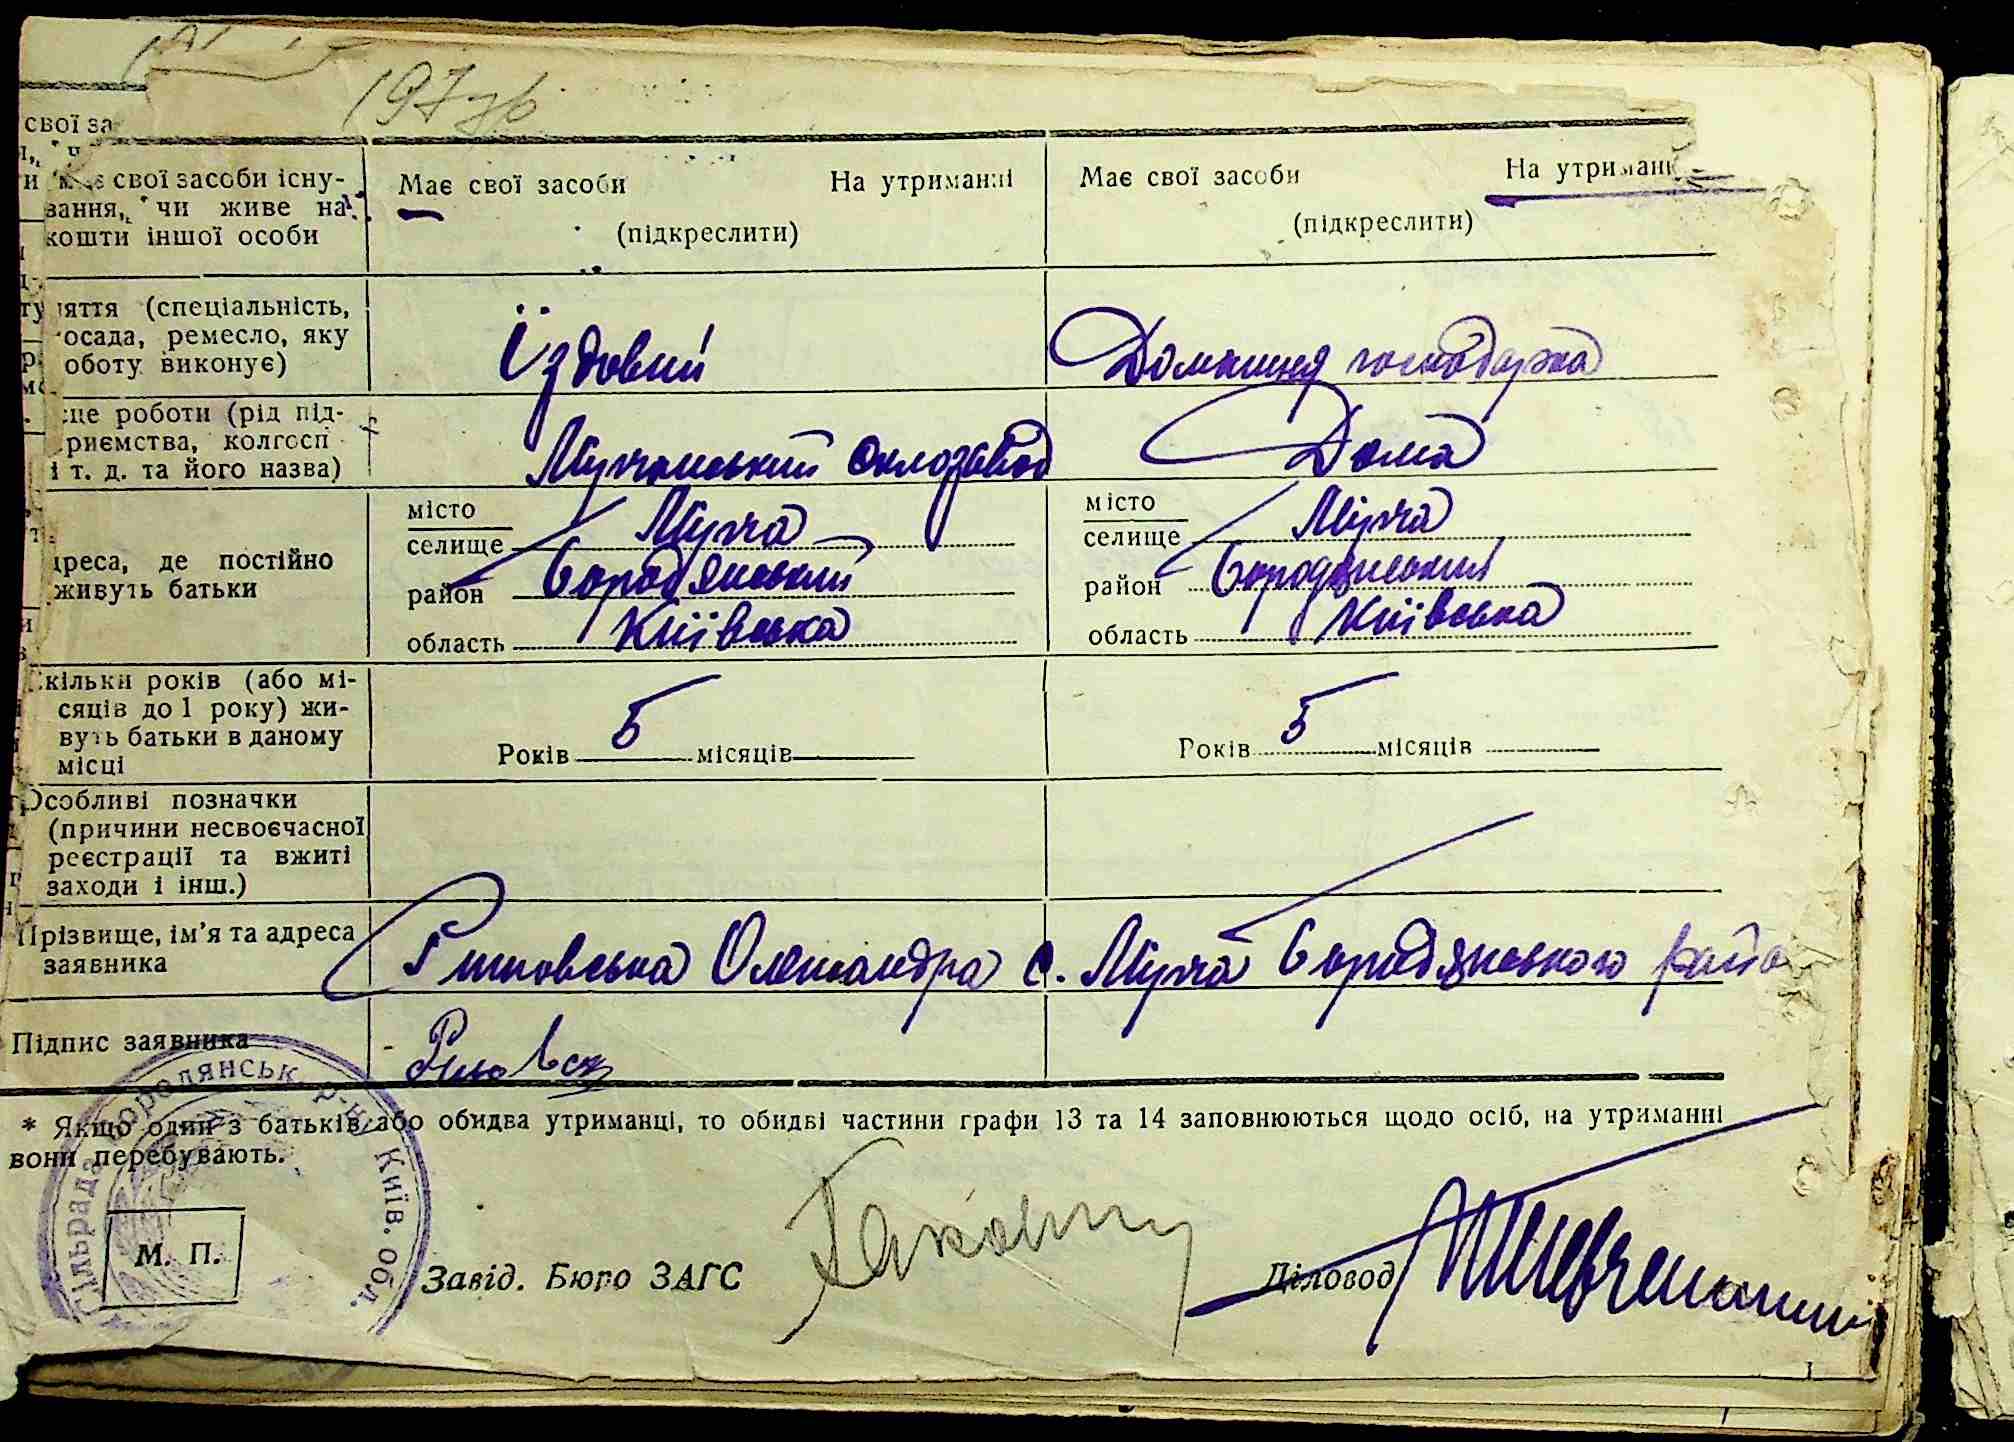 197 зв
свої за
має свої засоби існування, чи живе на кошти іншої особи
Має свої засоби На утриманні
(підкреслити)
Має свої засоби На утриманн
(підкреслити)
яття (спеціальність,
осада, ремесло, яку
оботу виконує)
Їздовий
Домашня господарка
сце роботи (рід під-
приємства, колгосп
і т. д. та його назва)
Мирчанський склозавод
Дома
дреса, де постійно
живуть батьки
місто
селище Мирча
район Бородянський
область Київська
місто
селище Мирча
район Бородянський
область Київська
кільки років (або мі-
сяців до 1 року) жи-
вуть батьки в даному
місці
Років 5 місяців
Років 5 місяців
Особливі позначки
(причини несвоєчасної
реєстрації та вжиті
заходи і інш.)
Прізвище, ім'я та адреса
заявника
Олександра с. Мирча Бородянського райо
Підпис заявника
* Якщо один з батьків або обидва утриманці, то обидві частини графи 13 та 14 заповнюються щодо осіб, на утриманні
вони перебувають.
Сільрада Бородянськ. р-ну Київ. обл.
М. П.
Завід. Бюро ЗАГС
Діловод